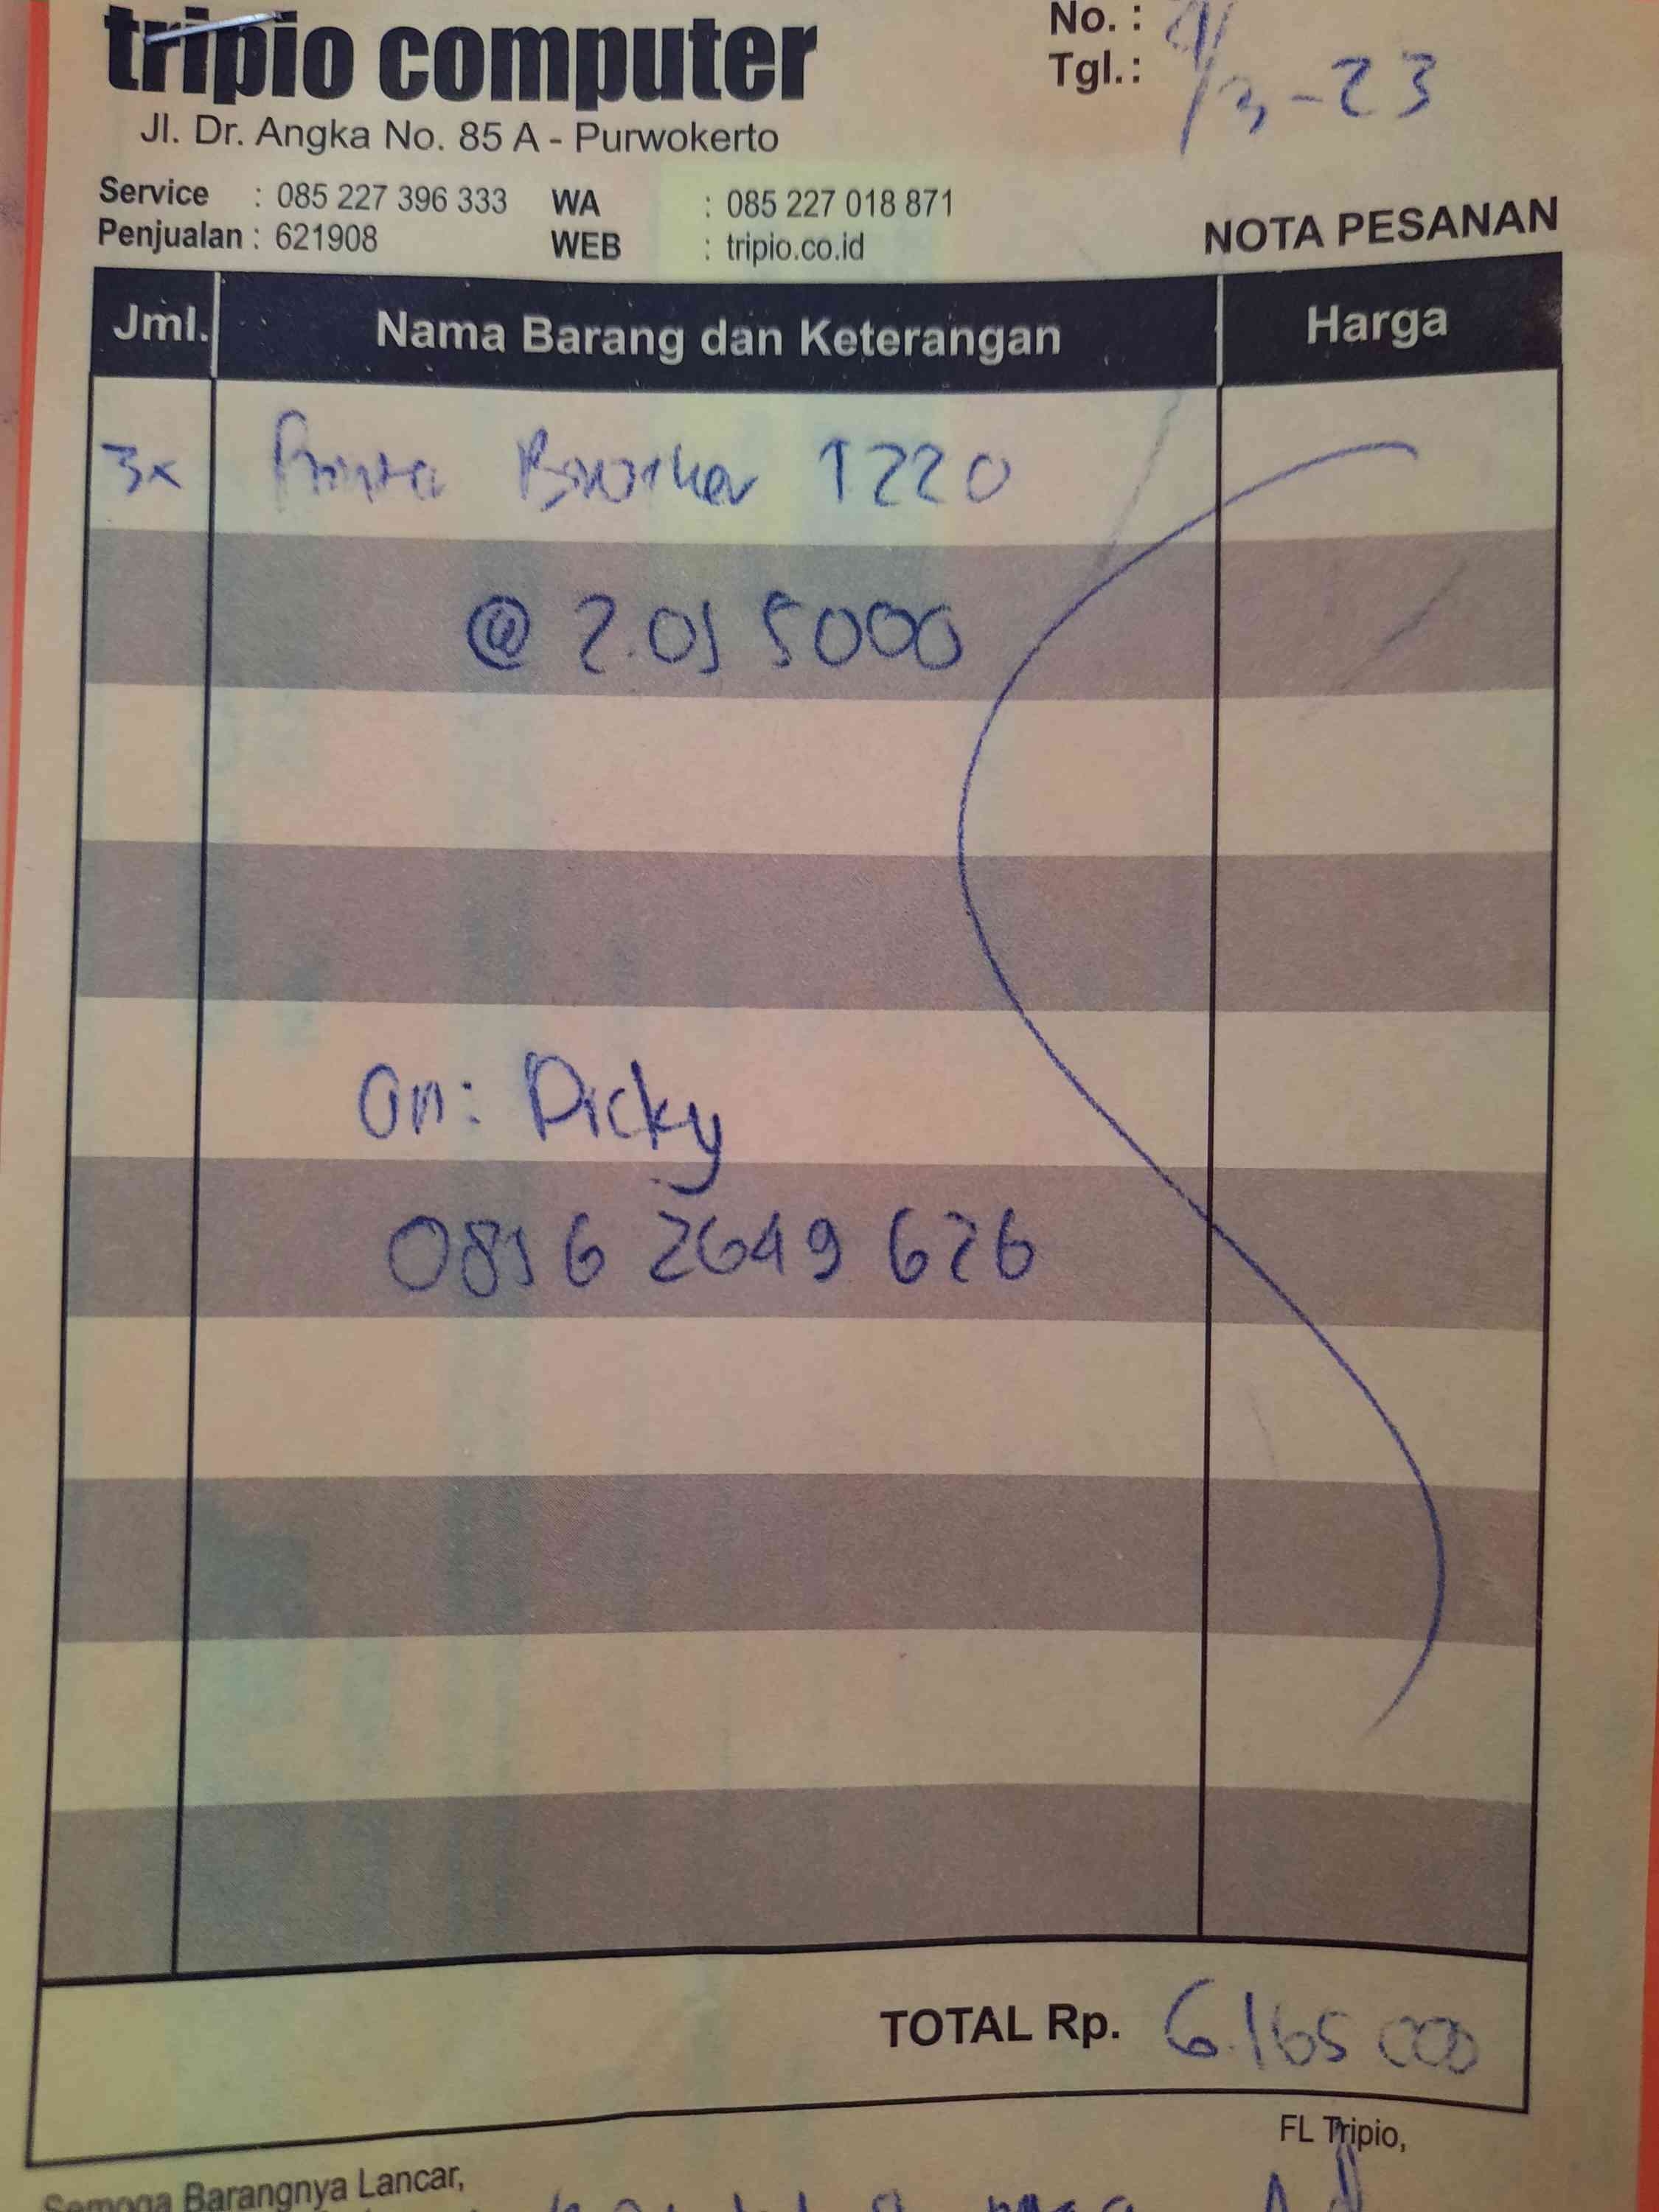 tripio computer
No. :
Tgl.: 21/3-23
Jl. Dr. Angka No. 85 A - Purwokerto
Service : 085 227 396 333 WA : 085 227 018 871
Penjualan : 621908 WEB : tripio.co.id
NOTA PESANAN
Jml. Nama Barang dan Keterangan Harga
3x Printer Brother 1220
@ 2.055000
an: Dicky
0856 2649 626
TOTAL Rp. 6.165 000
FL Tripio,
Semoga Barangnya Lancar,